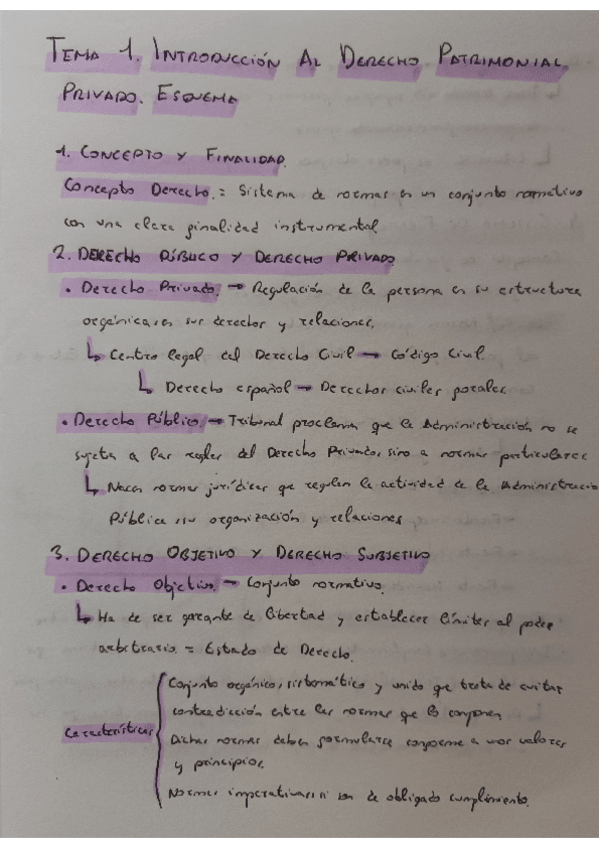 TEMA 1. INTRODUCCIÓN AL DERECHO PATRIMONIAL
PRIVADO. ESQUEMA
1. CONCEPTO Y FINALIDAD.
Concepto Derecho. = Sistema de normas en un conjunto normativo
con una clara finalidad instrumental
2. DERECHO PÚBLICO Y DERECHO PRIVADO
• Derecho Privado. → Regulación de la persona en su estructura
orgánica, en sus derechos y relaciones.
↳ Centro legal del Derecho Civil → Código Civil.
↳ Derecho español → Derechos civiles forales.
• Derecho Público. → Tribunal proclama que la Administración no se
sujeta a las reglas del Derecho Privado, sino a normas particulares
↳ Nacen normas jurídicas que regulen la actividad de la Administración
Pública, su organización y relaciones
3. DERECHO OBJETIVO Y DERECHO SUBJETIVO
• Derecho Objetivo. → Conjunto normativo.
↳ Ha de ser garante de libertad y establecer límites al poder
arbitrario = Estado de Derecho.
Características
Conjunto orgánico, sistemático y unido que trata de evitar
contradicción entre las normas que lo componen
Dichas normas deben formularse conforme a unos valores
y principios.
Normas imperativas, si son de obligado cumplimiento.